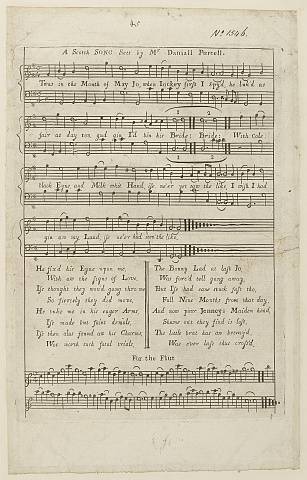 45
No 1546.
A Scotch SONG Sett by Mr Daniell Purcell.
Twas in the Month of May Jo, when Jockey first I spy'd, he look'd as
fair as day ton, gud gin I'd bin his Bride; Bride; With Cole
black Eyne, and Milk whit Hand, ise ne'er yet saw the like, I wish I had
gin aw my Land, ise ne'er had seen the like.
He fixd his Eyne upon me,
With aw the signs of Love,
Ise thought they wou'd gang thro me
So fiercely they did move,
He toke me in his eager Arms
Ise made but faint denials,
Ise then alas found aw his Charms,
Woe worth such fatal trials.
The Bonny Lad at last Jo,
Was forc'd tell gang away,
But Ise had eane such fast tho,
Full Nine Months from that day,
And now poor Jenneys Maiden head,
Shame out they find is lost,
The little brat has am betrayd,
Was ever lass thus cross'd.
For the Flute